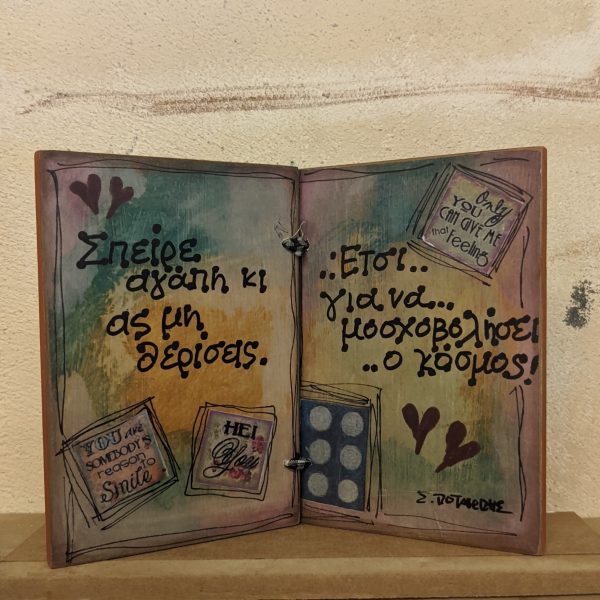 Σπείρε
αγάπη κι
ας μη
θερίσεις.
YOU are
SOMEBODY'S
reason
to
Smile
HEI
You
Only
YOU
CAN GIVE ME
that Feeling
..Ετσι..
για να...
μοσχοβολήσει
..ο κόσμος!